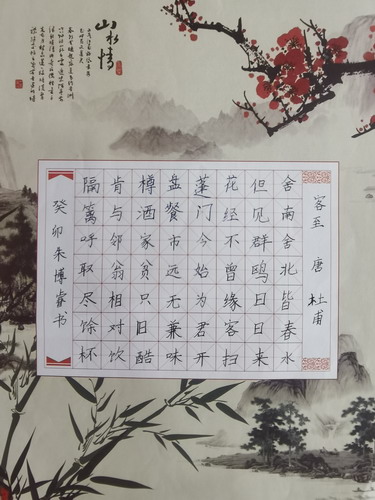 山水情
客至 唐 杜甫
舍南舍北皆春水
但见群鸥日日来
花径不曾缘客扫
蓬门今始为君开
盘餐市远无兼味
樽酒家贫只旧醅
肯与邻翁相对饮
隔篱呼取尽馀杯
癸卯朱博睿书